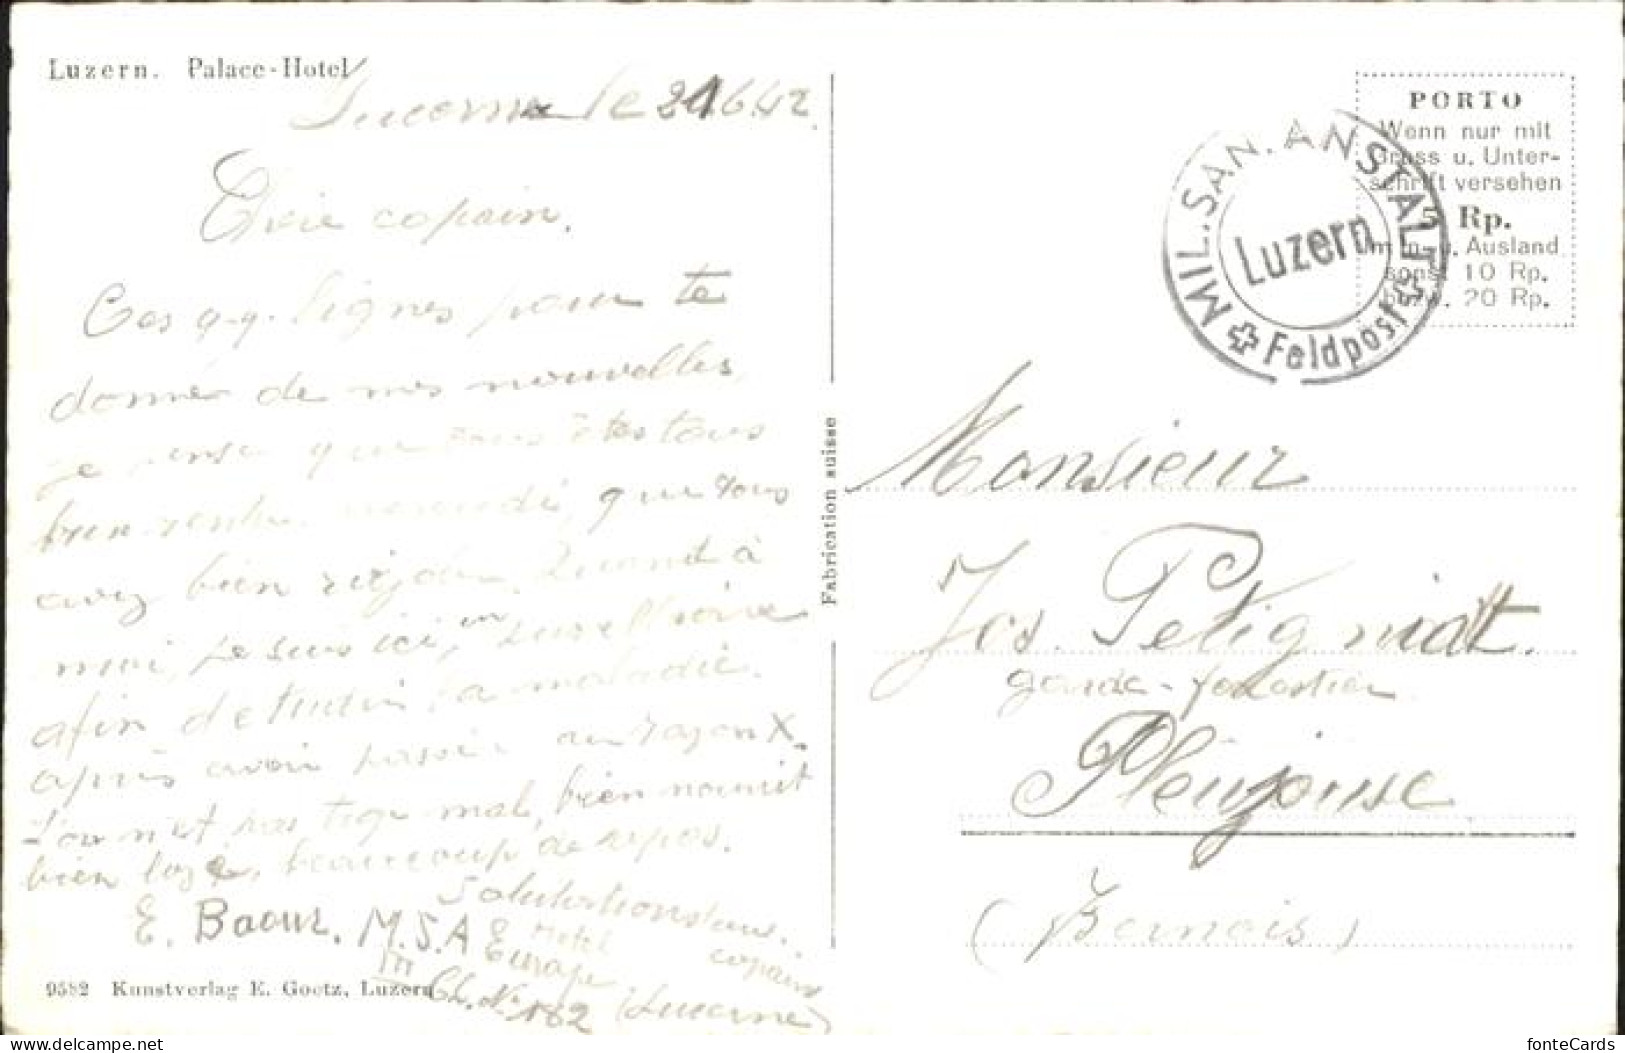 Luzern. Palace-Hotel
Lucerne le 21.6.42.
copain.
Ces q.q. lignes pour te
donner de mes nouvelles,
je pense que vous êtes tous
bien que vous
avez bien Quand à
moi, je suis ici, en
afin de la maladie.
après avoir passé au rayon X.
L'on n'est pas mal, bien nourrit
bien logé, beaucoup de repos.
Salutations
copains
E. Baour. M.S.A
Hotel
Europe
III
No 182 (Lucerne)
9582 Kunstverlag E. Goetz, Luzern
Fabrication suisse
PORTO
Wenn nur mit
Gruss u. Unter-
schrift versehen
5 Rp.
im In- u. Ausland
sonst 10 Rp.
bezw. 20 Rp.
MIL. SAN. ANSTALT
Luzern
Feldpost
Monsieur
Jos. Petignat.
garde-forestier
Pleujouse
(Bernois)
fonteCards
https://www.delcampe.net